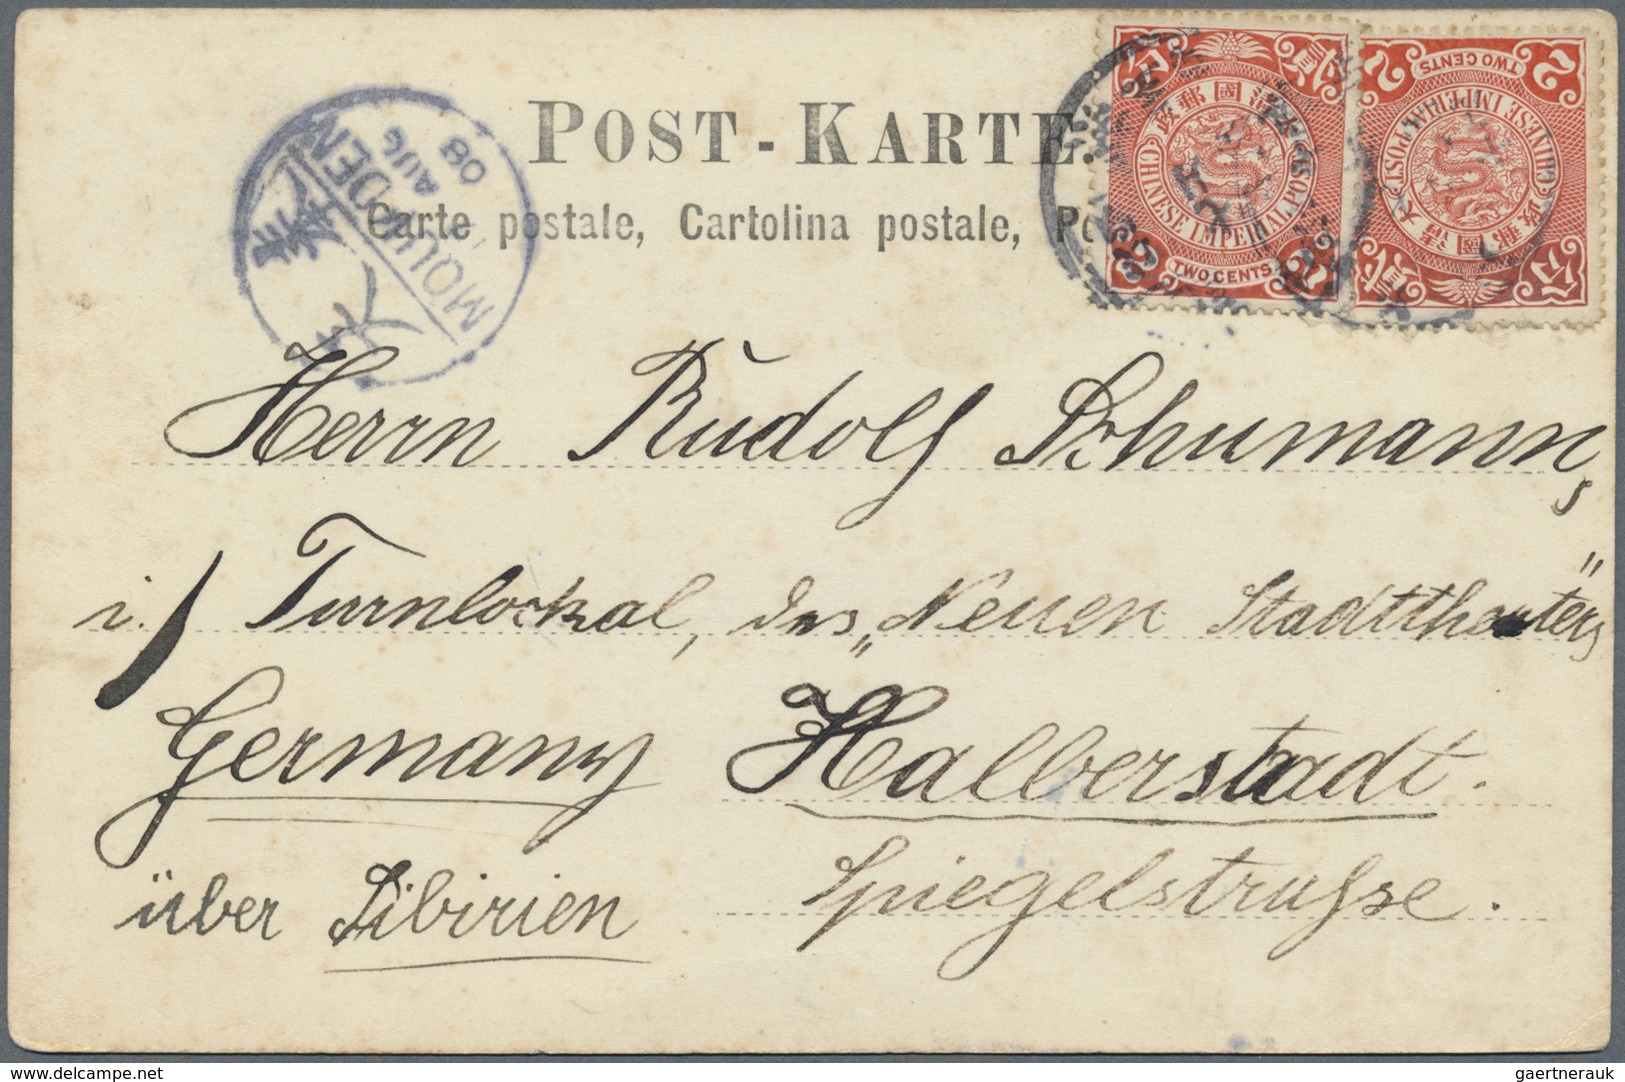 POST-KARTE.
Carte postale, Cartolina postale,
MOUKDEN
AUG
08
CHINESE IMPERIAL POST
大清國郵政
2 TWO CENTS 2
貳分
CHINESE IMPERIAL POST
大清國郵政
2 TWO CENTS 2
貳分
Herrn Rudolf Schumann,
i/ Turnlockal, des „Neuen Stadttheaters"
Germany Halberstadt.
über Sibirien Spiegelstrasse.
www.delcampe.net
gaertnerauk